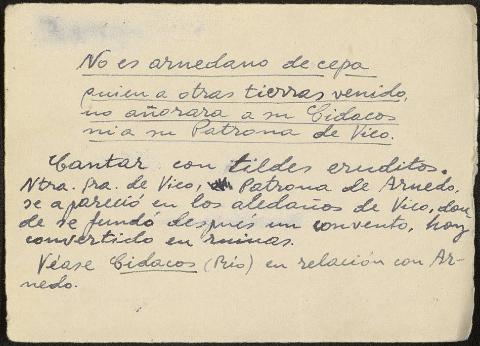 No es arnedano de cepa
quien a otras tierras venido,
no añorara a su Cidacos
ni a su Patrona de Vico.
Cantar con tildes eruditos.
Ntra. Sra. de Vico, Patrona de Arnedo,
se apareció en los aledaños de Vico, don
de se fundó después un convento, hoy
convertido en ruinas.
Véase Cidacos (Río) en relación con Ar-
nedo.